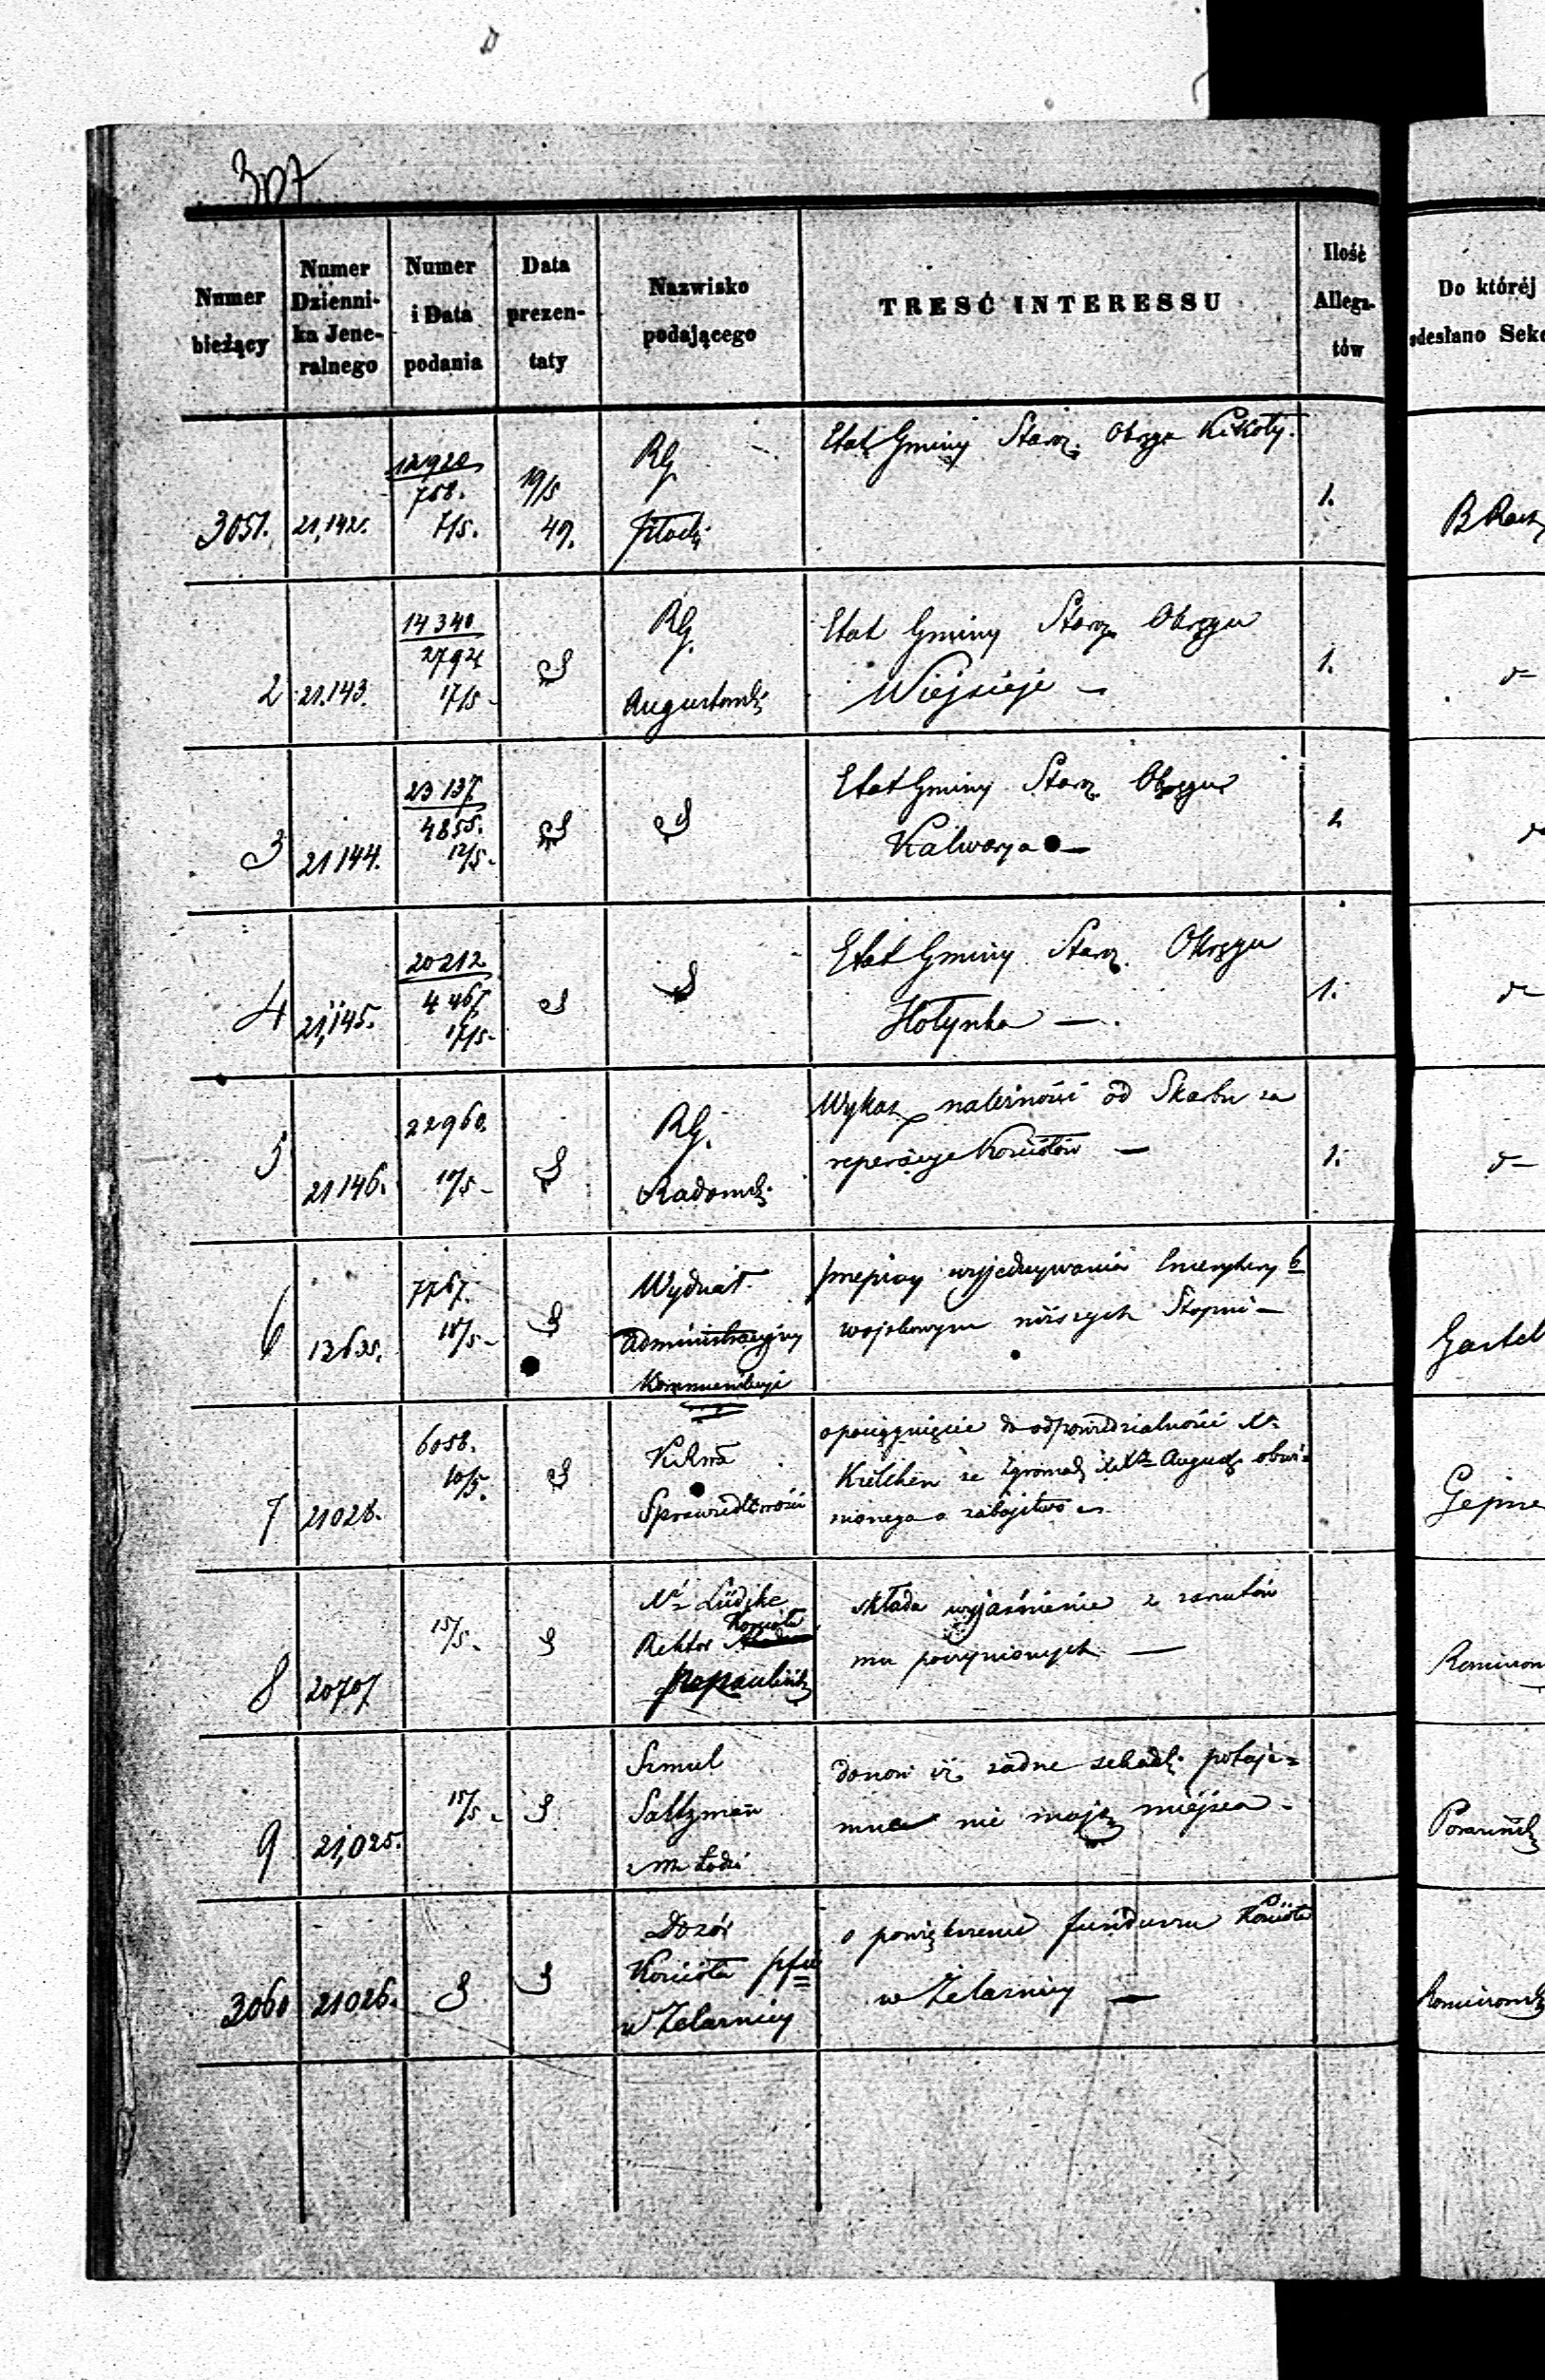 307
Numer bieżący
Numer Dzienni-ka Jene-ralnego
Numer i Data podania
Data prezen-taty
Nazwisko podającego
TRESĆ INTERESSU
Ilość Allega-tów
Do któréj
odesłano Sekc
3051. 21,142. 12920 758. 7/5. 19/5 49. RG Płocki Etat Gminy Staroz. Okręgu Kikoły. 1.
2 21.143. 14340 2792 17/5 RG. Augustowski Etat Gminy Staroz. Okręgu
Wiejsieje — 1.
3 21144. 23137 4855. 12/5. Etat Gminy Staroz. Okręgu
Kalwarya —
4 21,145. 20212 4467 17/5 Etat Gminy Staroz. Okręgu
Hołynka — 1.
5 21146. 22960. 10/5 RG. Radomski Wykaz należności od Skarbu za
reperacye Kościołów — 1.
6 1363. 7767. 18/5 Wydział
Administracyjny
Kommunikuje
przepisy wyjednywania Emerytury
wojskowym niższych Stopni —
7 21028. 6058. 10/5. KRzsa
Sprawiedliwości
o pociągnięcie do odpowiedzialności
Kretchen ze Zgromadz. obwi-
nionego o zabójstwo
8 20707 15/5. Xdz Lüdtke
Rektor Kościoła
składa wyjaśnienie z zarzutów
mu poczynionych —
9 21,025. 15/5. Szmul
Saltzman
z m. Łodzi
donosi iż żadne schadzki potaje-
mne nie mają miejsca
3060 21026. Dozór
Kościoła
w Żelaznicy
o powiększenie funduszu Kościoła
w Żelaznicy —